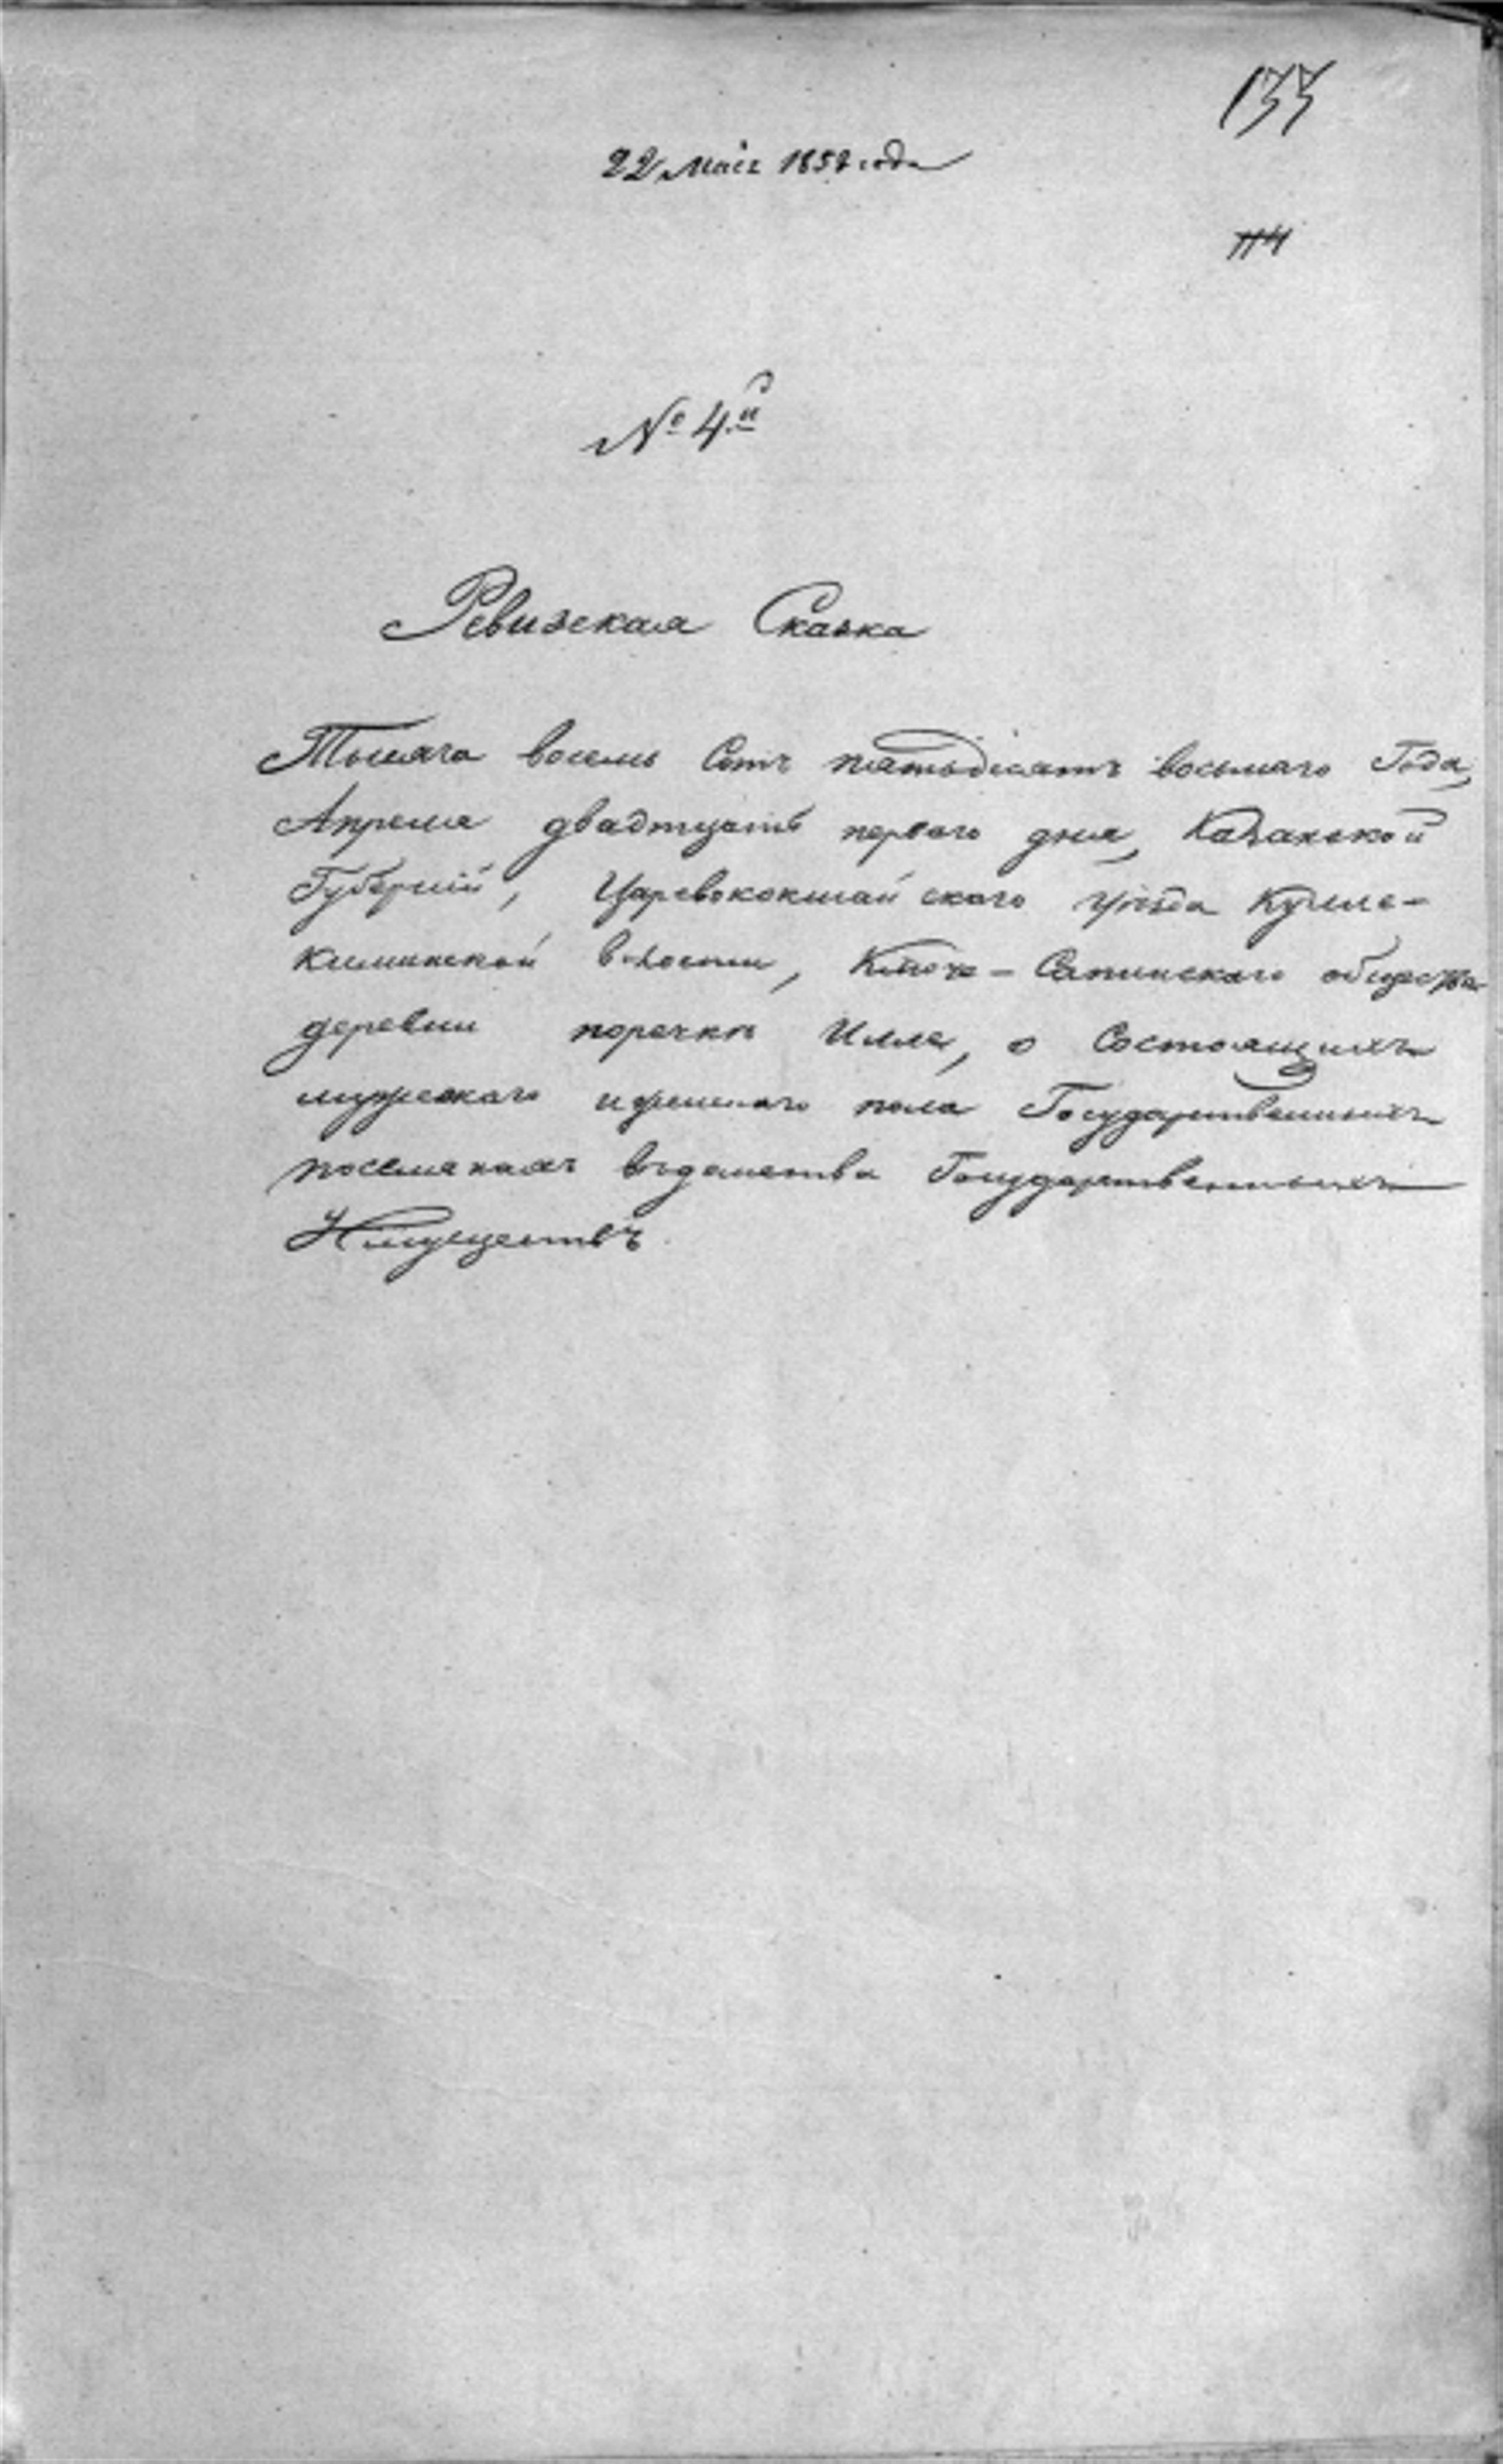 133
22 Мая 1858 года
114
№ 4й
Ревизская Сказка
Тысяча восемь Сотъ пятьдесятъ восьмаго Года,
Апреля двадтцать перваго дня, Казанской
Губерніи, Царевококшайскаго уѣзда Кулле-
киминской волости, Ключе-Сапинскаго общества
деревни поречкѣ Илле, о Состоящихъ
мужескаго и женскаго пола Государственныхъ
поселянахъ вѣдомства Государственныхъ
Имуществъ.